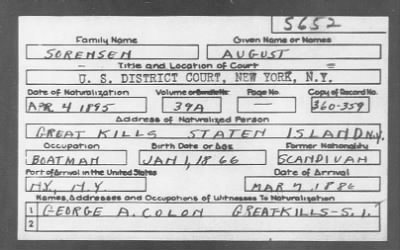 S652
Family Name Given Name or Names
SORENSEN AUGUST
Title and Location of Court
U. S. DISTRICT COURT, NEW YORK, N.Y.
Date of Naturalization Volume or Bundle No. Page No. Copy of Record No.
APR 4 1895 39A — 360-359
Address of Naturalized Person
GREAT KILLS STATEN ISLAND N.Y.
Occupation Birth Date or Age Former Nationality
BOATMAN JAN 1, 1866 SCANDIVAN
Port of Arrival in the United States Date of Arrival
NY, N.Y. MAR 7, 1886
Names, Addresses and Occupations of Witnesses To Naturalization
1 GEORGE A. COLON GREATKILLS-S.I.
2